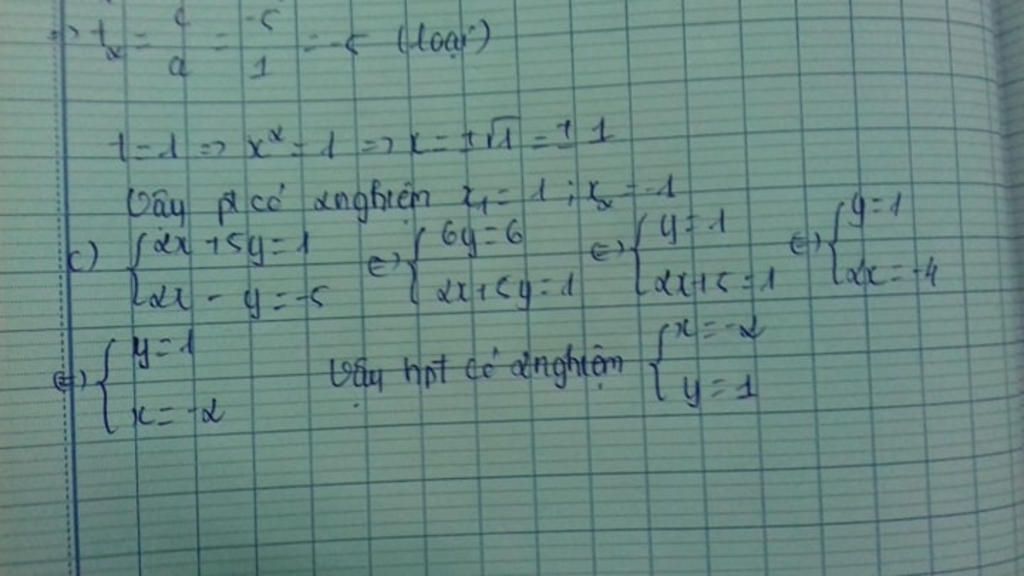 => t₂ = c/a = -5/1 = -5 (loại)
t=1 => x² = 1 => x = ±√1 = ± 1
Vậy pt có 2 nghiệm x₁ = 1 ; x₂ = -1
c) { 2x + 5y = 1 ; 2x - y = -5 <=> { 6y = 6 ; 2x + 5y = 1 <=> { y = 1 ; 2x + 5 = 1 <=> { y = 1 ; 2x = -4
<=> { y = 1 ; x = -2 Vậy hpt có 2 nghiệm { x = -2 ; y = 1